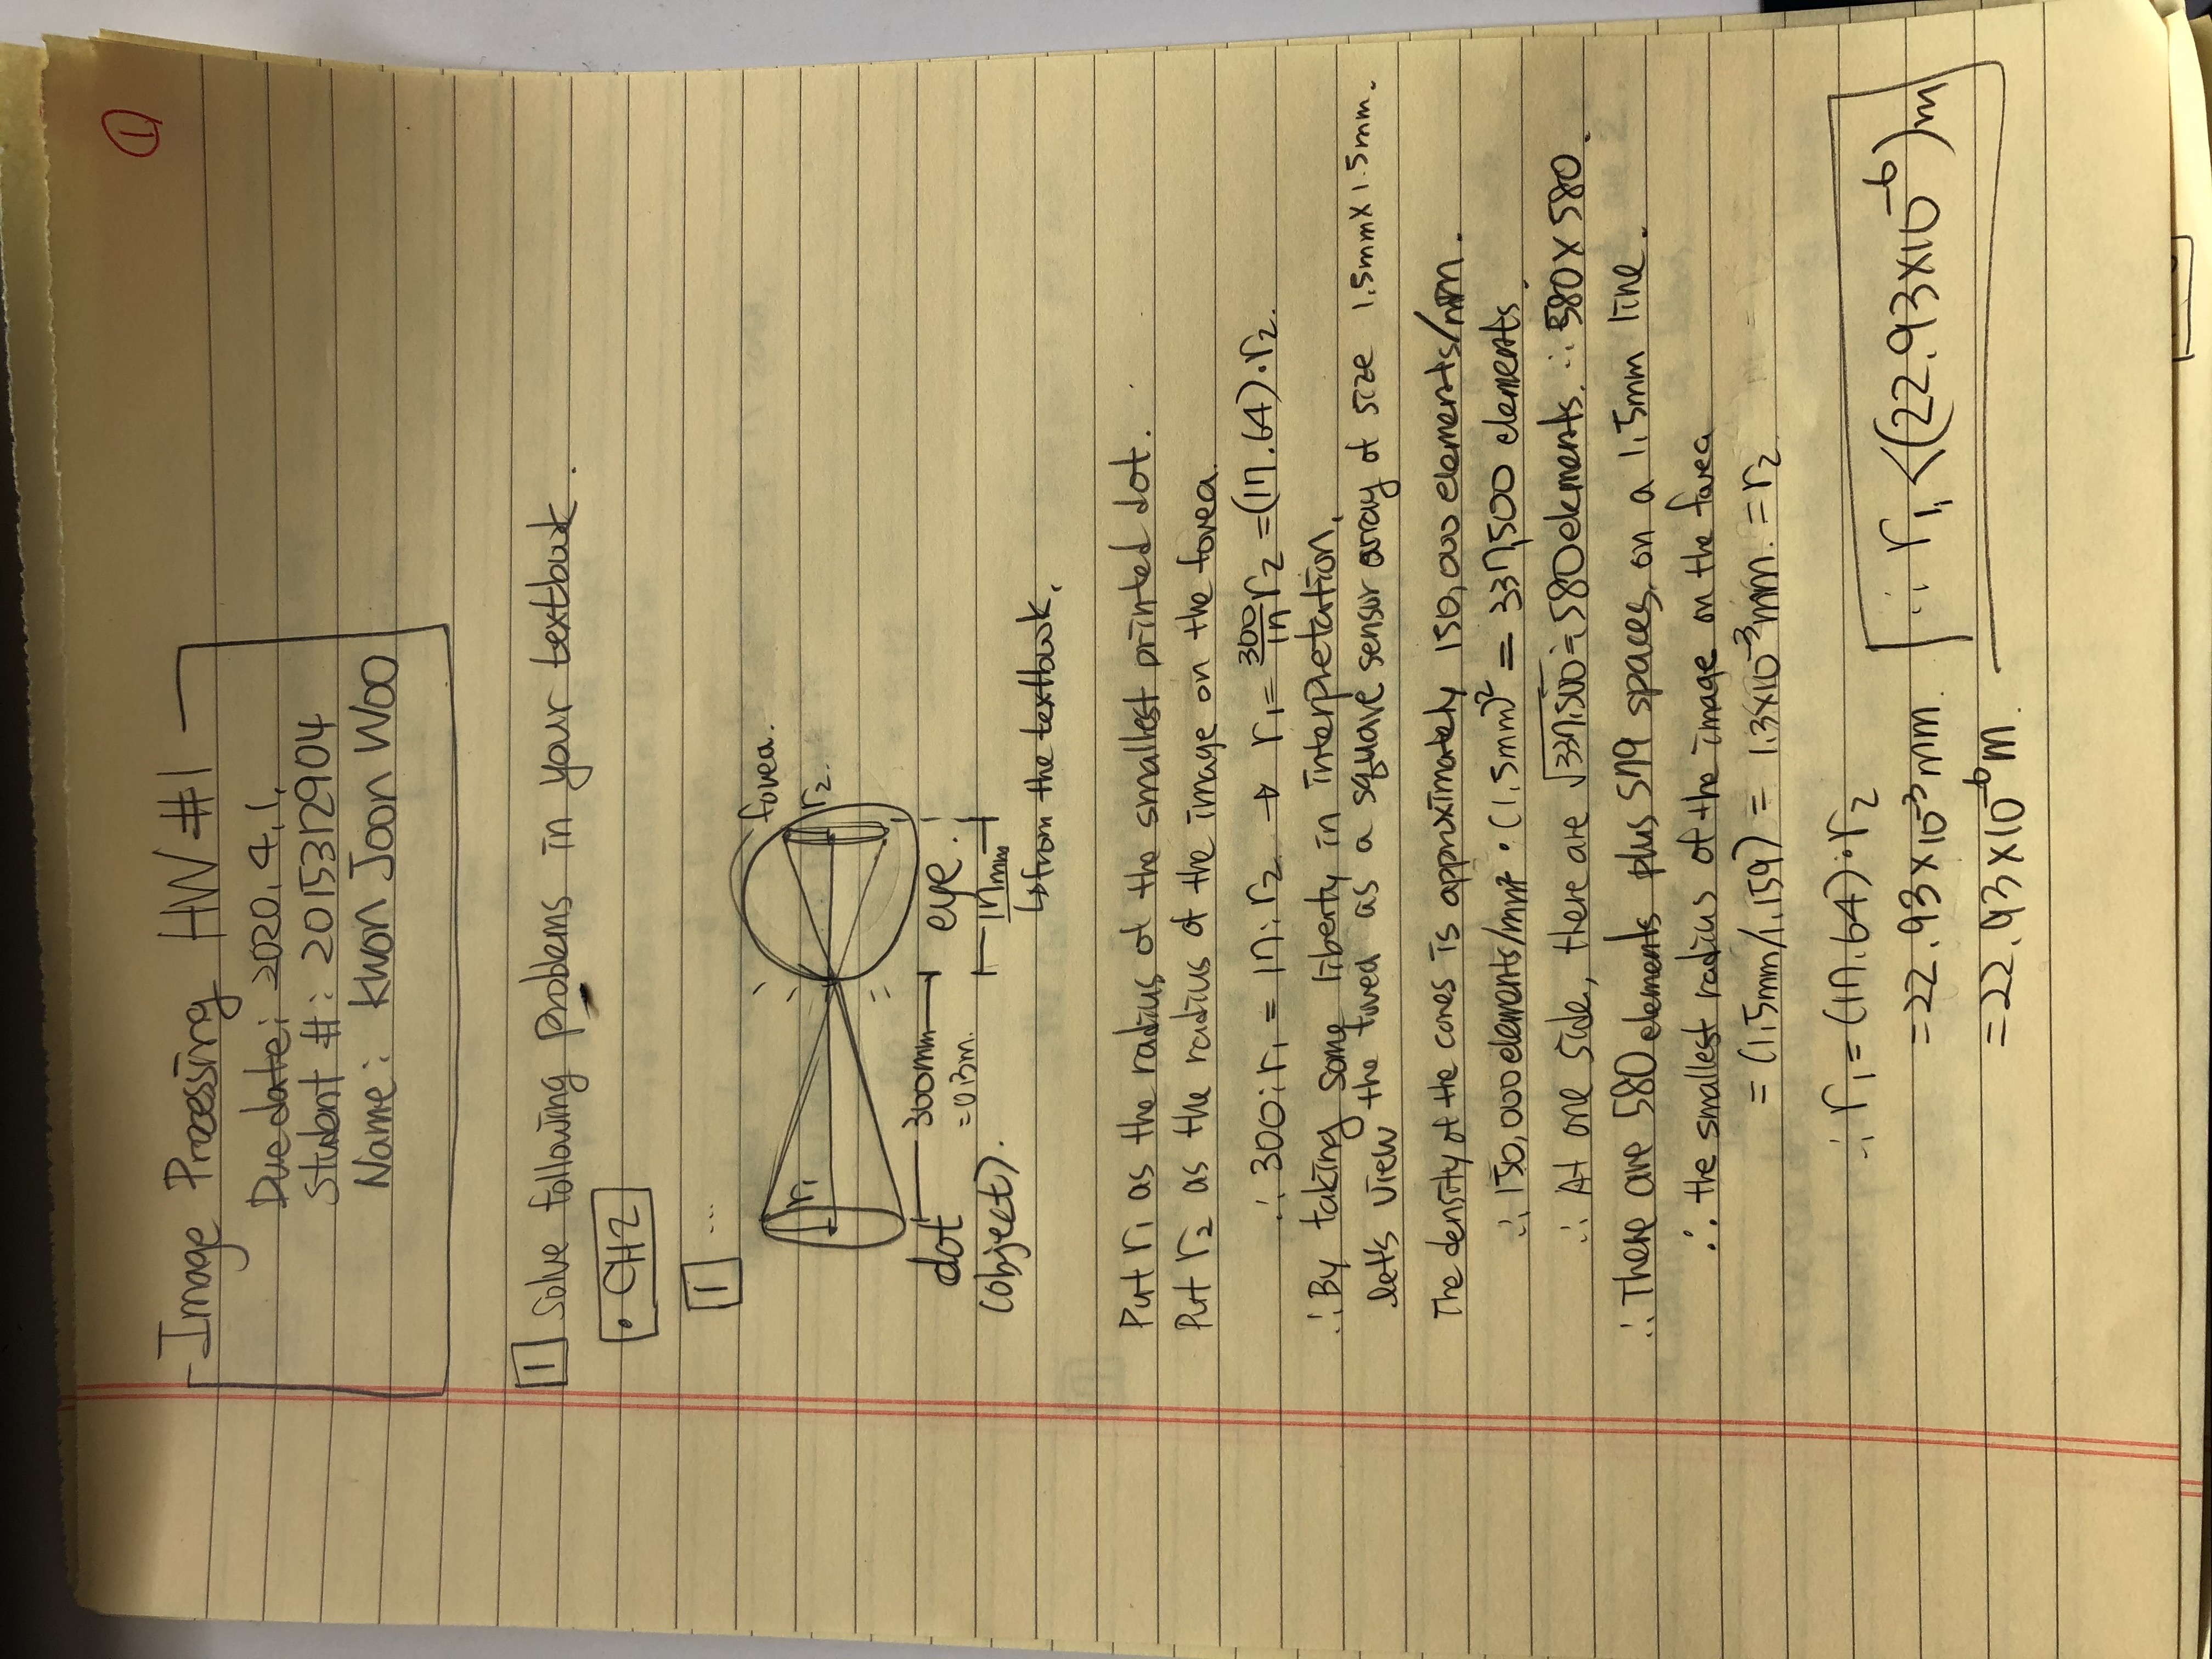 ①
Image Processing HW #1
Due date: 2020. 4. 1.
Student #: 2015312904
Name: Kwon Joon Woo
1 Solve following problems in your textbook.
• CH2
1 ...
fovea.
r₁
r₂.
300mm
dot
eye.
=0.3m.
(object).
17mm
↳from the textbook.
Put r₁ as the radius of the smallest printed dot.
Put r₂ as the radius of the image on the fovea.
∴ 300 : r₁ = 17 : r₂ → r₁ = 300/17 r₂ = (17.64)·r₂.
∴ By taking some liberty in interpretation,
let's view the fovea as a square sensor array of size 1.5mm×1.5mm.
The density of the cones is approximately 150,000 elements/mm.
∴ 150,000 elements/mm² • (1.5mm)² = 337,500 elements.
∴ At one side, there are √337,500 ≒ 580 elements. ∴ 580×580.
∴ There are 580 elements plus 579 spaces on a 1.5mm line.
∴ the smallest radius of the image on the fovea
= (1.5mm/1,159) = 1.3×10⁻³mm. = r₂
∴ r₁ = (17.64)·r₂
=22.93×10⁻³mm.
∴ r₁ <(22.93×10⁻⁶)m
=22.93×10⁻⁶m.